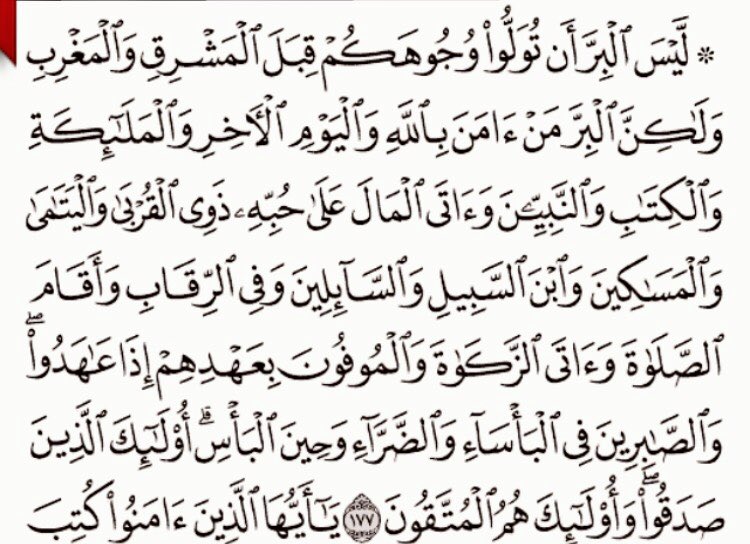 ۞ لَّيْسَ ٱلْبِرَّ أَن تُوَلُّوا۟ وُجُوهَكُمْ قِبَلَ ٱلْمَشْرِقِ وَٱلْمَغْرِبِ
وَلَـٰكِنَّ ٱلْبِرَّ مَنْ ءَامَنَ بِٱللَّهِ وَٱلْيَوْمِ ٱلْـَٔاخِرِ وَٱلْمَلَـٰٓئِكَةِ
وَٱلْكِتَـٰبِ وَٱلنَّبِيِّـۧنَ وَءَاتَى ٱلْمَالَ عَلَىٰ حُبِّهِۦ ذَوِى ٱلْقُرْبَىٰ وَٱلْيَتَـٰمَىٰ
وَٱلْمَسَـٰكِينَ وَٱبْنَ ٱلسَّبِيلِ وَٱلسَّآئِلِينَ وَفِى ٱلرِّقَابِ وَأَقَامَ
ٱلصَّلَوٰةَ وَءَاتَى ٱلزَّكَوٰةَ وَٱلْمُوفُونَ بِعَهْدِهِمْ إِذَا عَـٰهَدُوا۟ ۖ
وَٱلصَّـٰبِرِينَ فِى ٱلْبَأْسَآءِ وَٱلضَّرَّآءِ وَحِينَ ٱلْبَأْسِ ۗ أُو۟لَـٰٓئِكَ ٱلَّذِينَ
صَدَقُوا۟ ۖ وَأُو۟لَـٰٓئِكَ هُمُ ٱلْمُتَّقُونَ ١٧٧ يَـٰٓأَيُّهَا ٱلَّذِينَ ءَامَنُوا۟ كُتِبَ